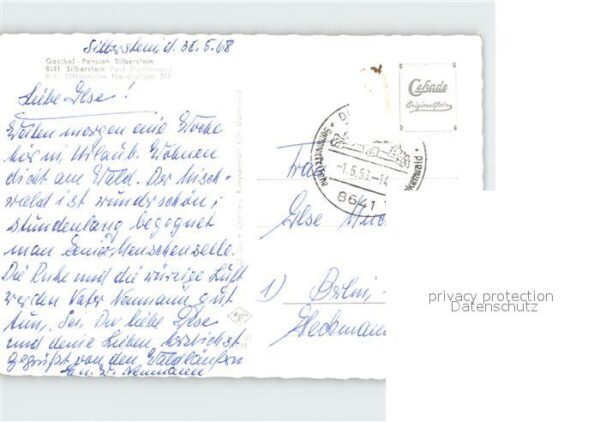 Silberstein, d. 30.5.68
Gasthof - Pension Silberstein
8641 Silberstein Post
Öffentliche
Liebe Ilse!
morgen eine Woche
hier in Urlaub. Wohnen
dicht am Wald. Der Misch-
wald ist wunderschön;
stundenlang begegnet
man keiner Menschenseele.
Die Ruhe und die würzige Luft
werden Vater Neumann gut
tun. Sei Du liebe Ilse
und deine Lieben, herzlichst
gegrüßt von den Waldläufern
W. Neumann
Cekade
Originalfoto
-1.6.68-14
8641
kenwald
Frau
Ilse
1) Berlin-
privacy protection
Datenschutz